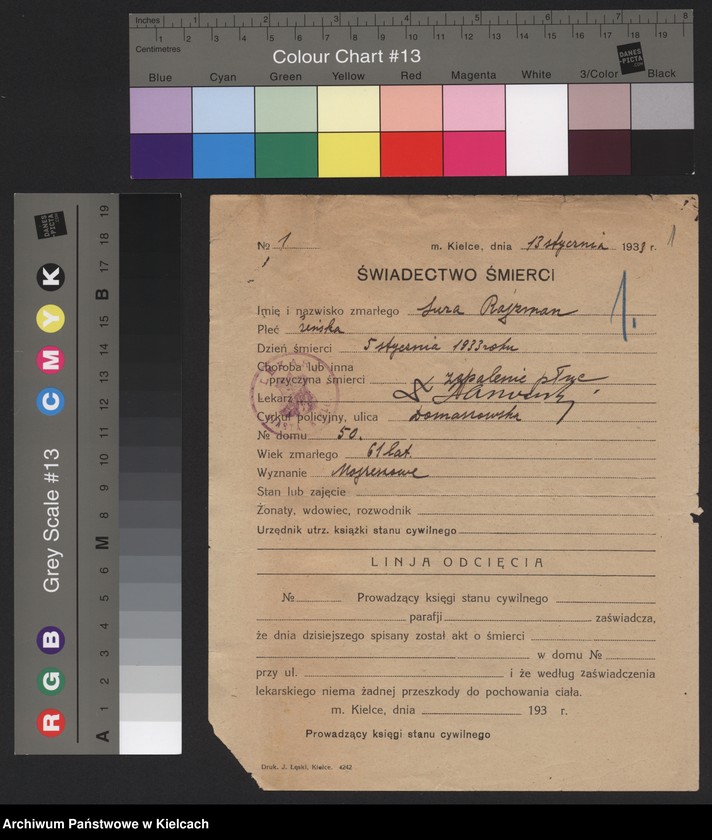 Inches 1 2 3 4 5 6 7 8
Centimetres 1 2 3 4 5 6 7 8 9 10 11 12 13 14 15 16 17 18 19
Colour Chart #13
DANES-PICTA
Blue Cyan Green Yellow Red Magenta White 3/Color Black
Grey Scale #13
DANES-PICTA
R G B C M Y K
A 1 2 3 4 5 6 M 8 9 10 11 12 13 14 15 B 17 18 19
№ 1 m. Kielce, dnia 13 stycznia 1933 r. 1
ŚWIADECTWO ŚMIERCI
1.
Imię i nazwisko zmarłego Sura Rajzman
Płeć żeńska
Dzień śmierci 5 stycznia 1933 roku
Choroba lub inna
przyczyna śmierci zapalenie płuc
Lekarz
Cyrkuł policyjny, ulica Domaszowska
№ domu 50.
Wiek zmarłego 61 lat
Wyznanie Mojżeszowe
Stan lub zajęcie
Żonaty, wdowiec, rozwodnik
Urzędnik utrz. książki stanu cywilnego
LINJA ODCIĘCIA
№ Prowadzący księgi stanu cywilnego
parafji zaświadcza,
że dnia dzisiejszego spisany został akt o śmierci
w domu №
przy ul. i że według zaświadczenia
lekarskiego niema żadnej przeszkody do pochowania ciała.
m. Kielce, dnia 193 r.
Prowadzący księgi stanu cywilnego
Druk. J. Łęski, Kielce. 4242
Archiwum Państwowe w Kielcach